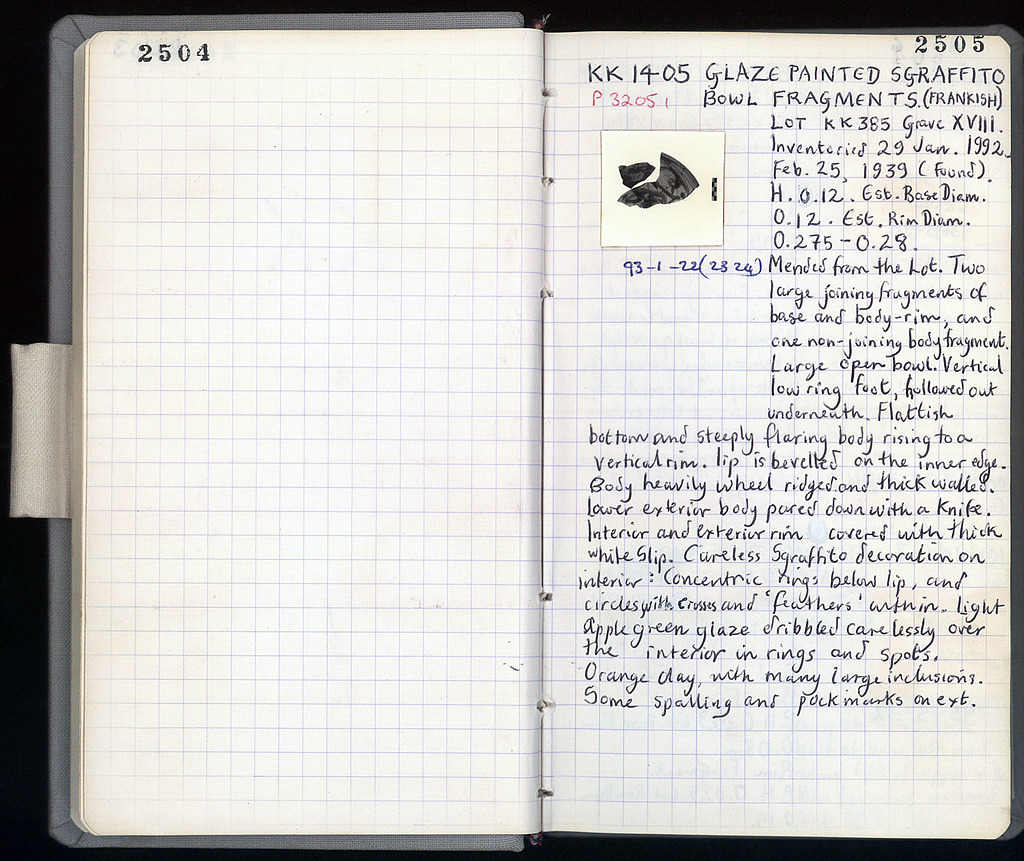 2504
2505
KK 1405 GLAZE PAINTED SGRAFFITO
P 32051 BOWL FRAGMENTS. (FRANKISH)
LOT KK 385 Grave XVIII.
Inventoried 29 Jan. 1992.
Feb. 25, 1939 (found).
H. 0.12. Est. Base Diam.
0.12. Est. Rim Diam.
0.275 - 0.28.
93-1-22 (23 24) Mended from the Lot. Two
large joining fragments of
base and body-rim, and
one non-joining body fragment.
Large open bowl. Vertical
low ring foot, hollowed out
underneath. Flattish
bottom and steeply flaring body rising to a
vertical rim. lip is bevelled on the inner edge.
Body heavily wheel ridged and thick walled.
lower exterior body pared down with a knife.
Interior and exterior rim covered with thick
white slip. Careless Sgraffito decoration on
interior: Concentric rings below lip, and
circles with crosses and 'feathers' within. light
apple green glaze dribbled carelessly over
the interior in rings and spots.
Orange clay, with many large inclusions.
Some spalling and pock marks on ext.